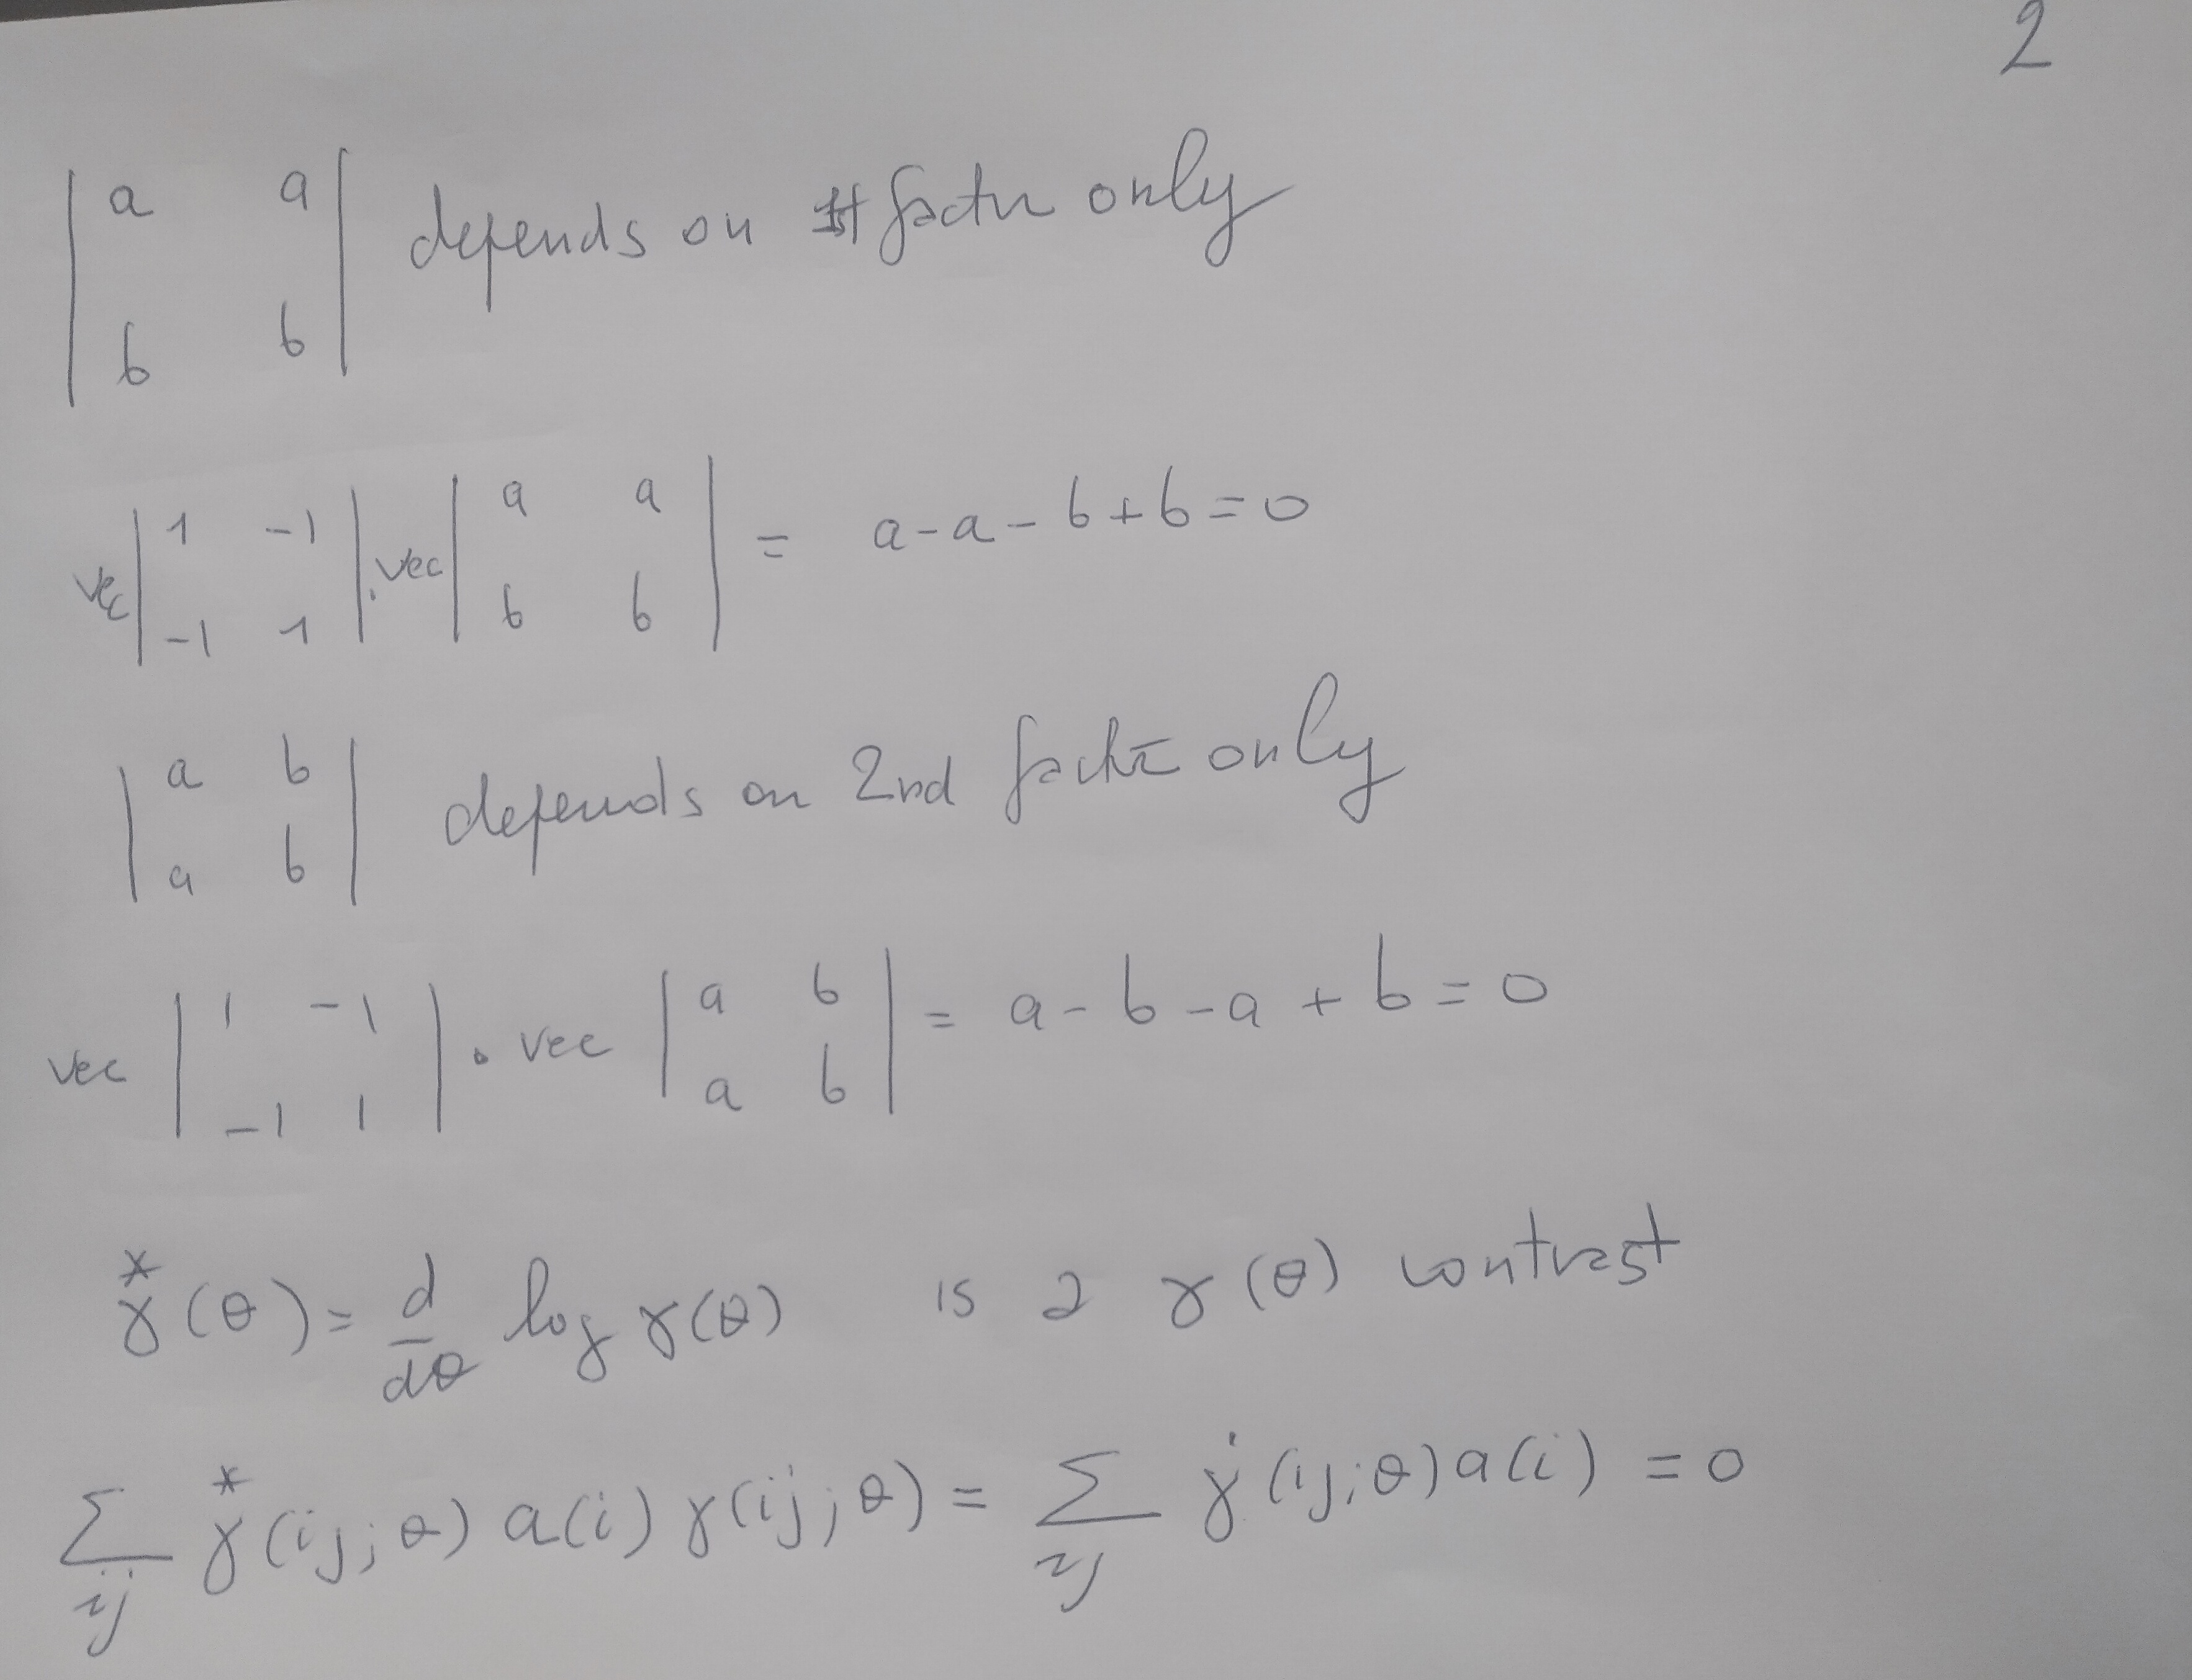 2
| a a | depends on 1st factor only
| b b |
vec | 1 -1 | . vec | a a | = a - a - b + b = 0
| -1 1 | | b b |
| a b | depends on 2nd factor only
| a b |
vec | 1 -1 | . vec | a b | = a - b - a + b = 0
| -1 1 | | a b |
γ*(θ) = d/dθ log γ(θ) is a γ(θ) contrast
∑_ij γ*(ij;θ) a(i) γ(ij;θ) = ∑_ij γ̇(ij;θ) a(i) = 0